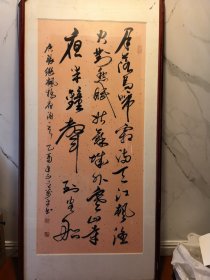 月落烏啼霜满天江枫渔
火對愁眠姑蘇城外寒山寺
夜半鐘聲到客船
唐張繼楓橋夜泊詩乙酉書